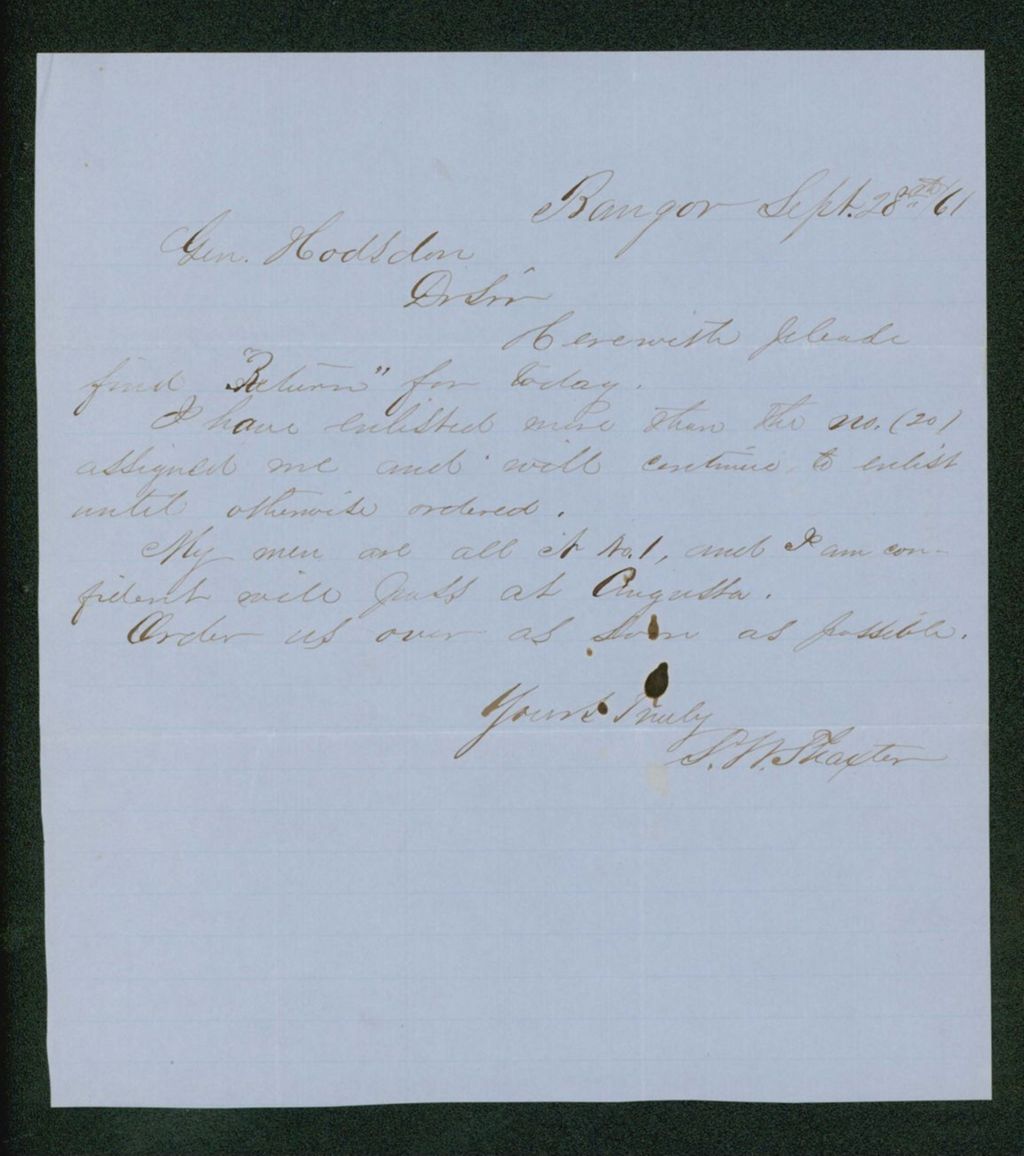 Bangor Sept. 28th /61
Gen. Hodsdon
Dr Sir
Herewith please
find "Return" for today.
I have enlisted more than the no. (20)
assigned me and will continue to enlist
until otherwise ordered.
My men are all A No. 1, and I am con-
fident will pass at Augusta.
Order us over as soon as possible.
Yours Truly
S. W. Thaxter